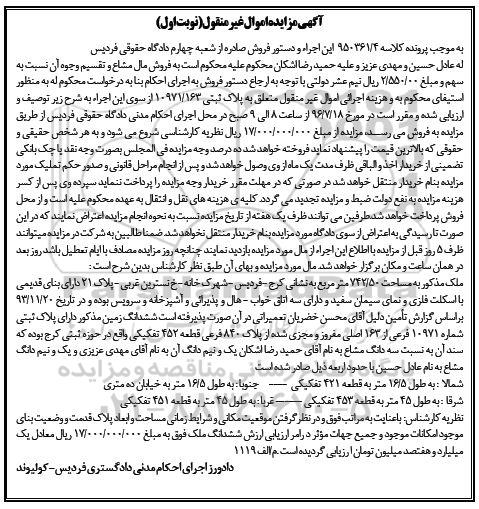 آگهی مزایده اموال غیر منقول (نوبت اول)
به موجب پرونده کلاسه ۹۵۰۳۶۱/۴ این اجراء و دستور فروش صادره از شعبه چهارم دادگاه حقوقی فردیس
له عادل حسین و مهدی عزیز و علیه حمید رضا اشکان محکوم علیه محکوم است به فروش مال مشاع و تقسیم وجوه آن نسبت به
سهم و مبلغ ۲/۵۵۰/۰۰ ریال نیم عشر دولتی با توجه به ارجاع دستور فروش به اجرای احکام بنا به درخواست محکوم له به منظور
استیفای محکوم به و هزینه اجرائی اموال غیر منقول متعلق به پلاک ثبتی ۱۰۹۷۱/۱۶۳ از سوی این اجراء به شرح زیر توصیف و
ارزیابی شده و مقرر است در مورخ ۹۶/۷/۱۸ از ساعت ۸ الی ۹ صبح در محل اجرای احکام مدنی دادگاه حقوقی فردیس از طریق
مزایده به فروش می رسد مزایده از مبلغ ۱۷/۰۰۰/۰۰۰/۰۰۰ ریال نظریه کارشناسی شروع می شود و به هر شخص حقیقی و
حقوقی که بالاترین قیمت را پیشنهاد نماید فروخته خواهد شد ده درصد وجه مزایده فی المجلس بصورت وجه نقد یا چک بانکی
تضمینی از خریدار اخذ و الباقی ظرف مدت یک ماه از وی وصول خواهد شد و پس از انجام مراحل قانونی و صدور حکم تملیک مورد
مزایده بنام خریدار منتقل خواهد شد در صورتی که در مهلت مقرر خریدار وجه مزایده را پرداخت ننماید سپرده وی پس از کسر
هزینه مزایده به نفع دولت ضبط و مزایده تجدید می گردد. کلیه ی هزینه های نقل و انتقال به عهده محکوم علیه است و از محل
فروش پرداخت خواهد شد طرفین می توانند ظرف یک هفته از تاریخ مزایده نسبت به نحوه انجام مزایده اعتراض نمایند که در این
صورت تا رسیدگی به اعتراض از سوی دادگاه مورد مزایده بنام خریدار منتقل نخواهد شد ضمنا طالبین به شرکت در مزایده میتوانند
ظرف ۵ روز قبل از مزایده با اطلاع این اجراء از مال مورد مزایده بازدید نمایند چنانچه روز مزایده مصادف با ایام تعطیل باشد روز بعد
در همان ساعت و مکان برگزار خواهد شد. مال مورد مزایده و بهای آن طبق نظر کارشناس بدین شرح است:
ملک مذکور به مساحت ۷۴۲/۵۰ متر مربع به نشانی کرج - فردیس - شهرک خانه - خ نسترن غربی - پلاک ۲۱ دارای بنای قدیمی
با اسکلت فلزی و نمای سیمان سفید و دارای سه اتاق خواب - هال و پذیرائی و آشپزخانه و سرویس بوده و در تاریخ ۹۳/۱۱/۲۰
براساس گزارش تأمین دلیل آقای محسن خضریان تعمیراتی در آن صورت پذیرفته است ششدانگ زمین مذکور دارای پلاک ثبتی
شماره ۱۰۹۷۱ فرعی از ۱۶۳ اصلی مفروز و مجزی شده از پلاک ۸۴۰ فرعی قطعه ۴۵۲ تفکیکی واقع در حوزه ثبتی کرج بوده که
سند آن به نسبت سه دانگ مشاع به نام آقای حمید رضا اشکان یک و نیم دانگ آن به نام آقای مهدی عزیزی و یک و نیم دانگ
مشاع به نام عادل حسین با حدود اربعه ذیل صادر شده است
شمالا : به طول ۱۶/۵ متر به قطعه ۴۲۱ تفکیکی ---- جنوبا: به طول ۱۶/۵ متر به خیابان ده متری
شرقا : به طول ۴۵ متر به قطعه ۴۵۳ تفکیکی ---- غربا: به طول ۴۵ متر به قطعه ۴۵۱ تفکیکی
نظریه کارشناس: با عنایت به مراتب فوق و در نظر گرفتن موقعیت مکانی و شرایط زمانی مساحت و ابعاد پلاک قدمت و وضعیت بنای
موجود امکانات موجود و جمیع جهات مؤثر در امر ارزیابی ارزش ششدانگ ملک فوق به مبلغ ۱۷/۰۰۰/۰۰۰/۰۰۰ ریال معادل یک
میلیارد و هفتصد میلیون تومان ارزیابی گردیده است. م/الف ۱۱۱۹
دادورز اجرای احکام مدنی دادگستری فردیس - کولیوند